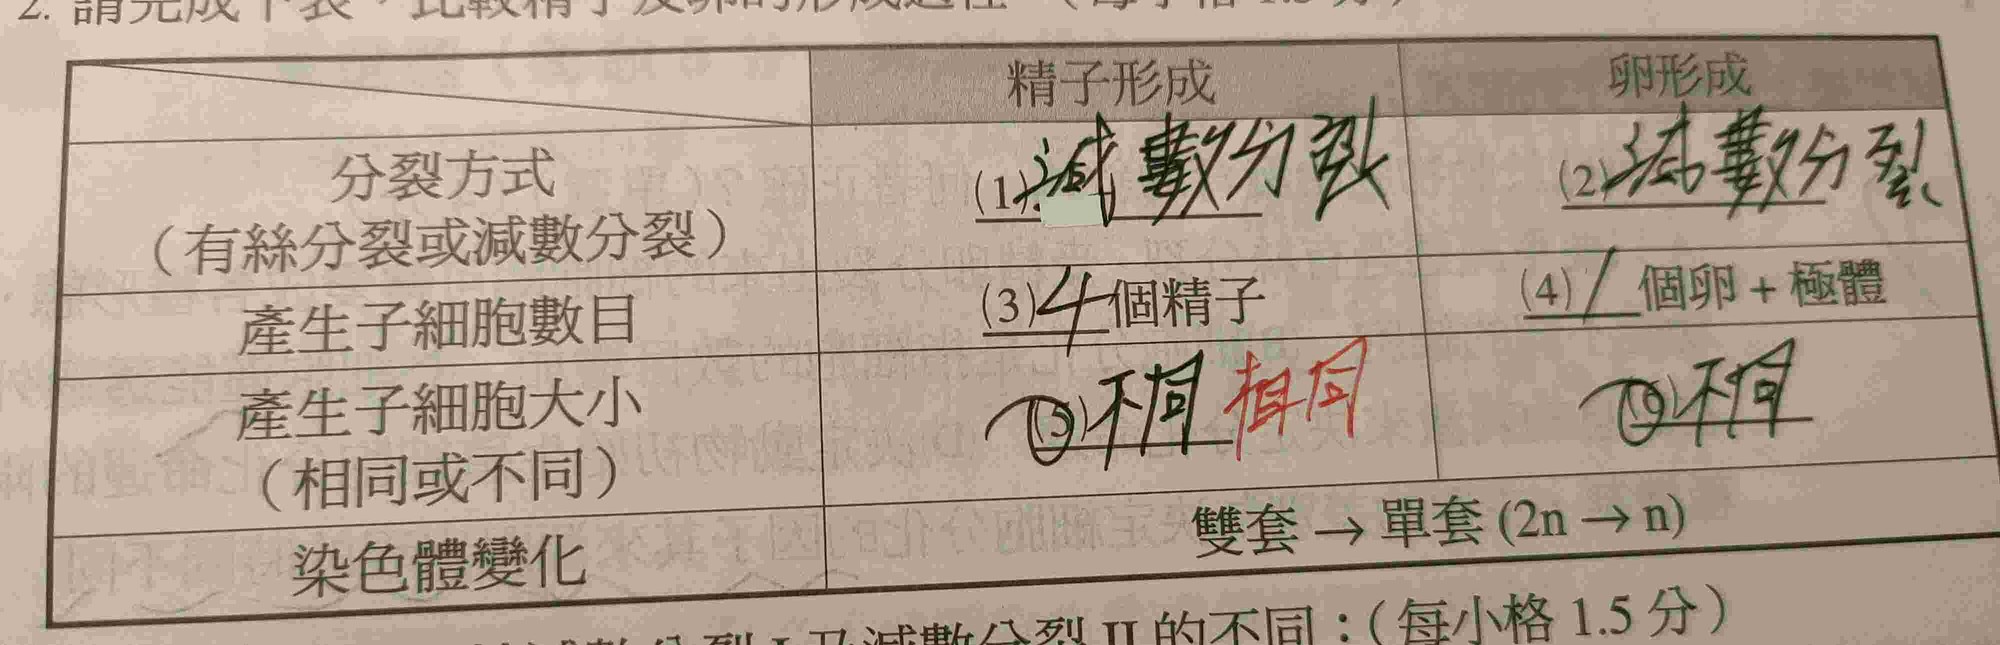 2. 請完成下表，比較精子及卵的形成過程（每小格 1.5 分）
精子形成
卵形成
分裂方式
（有絲分裂或減數分裂）
(1)減數分裂
(2)減數分裂
產生子細胞數目
(3)4個精子
(4)1個卵 + 極體
產生子細胞大小
（相同或不同）
(5)不同 相同
(6)不同
染色體變化
雙套 → 單套 (2n → n)
減數分裂 I 及減數分裂 II 的不同：（每小格 1.5 分）